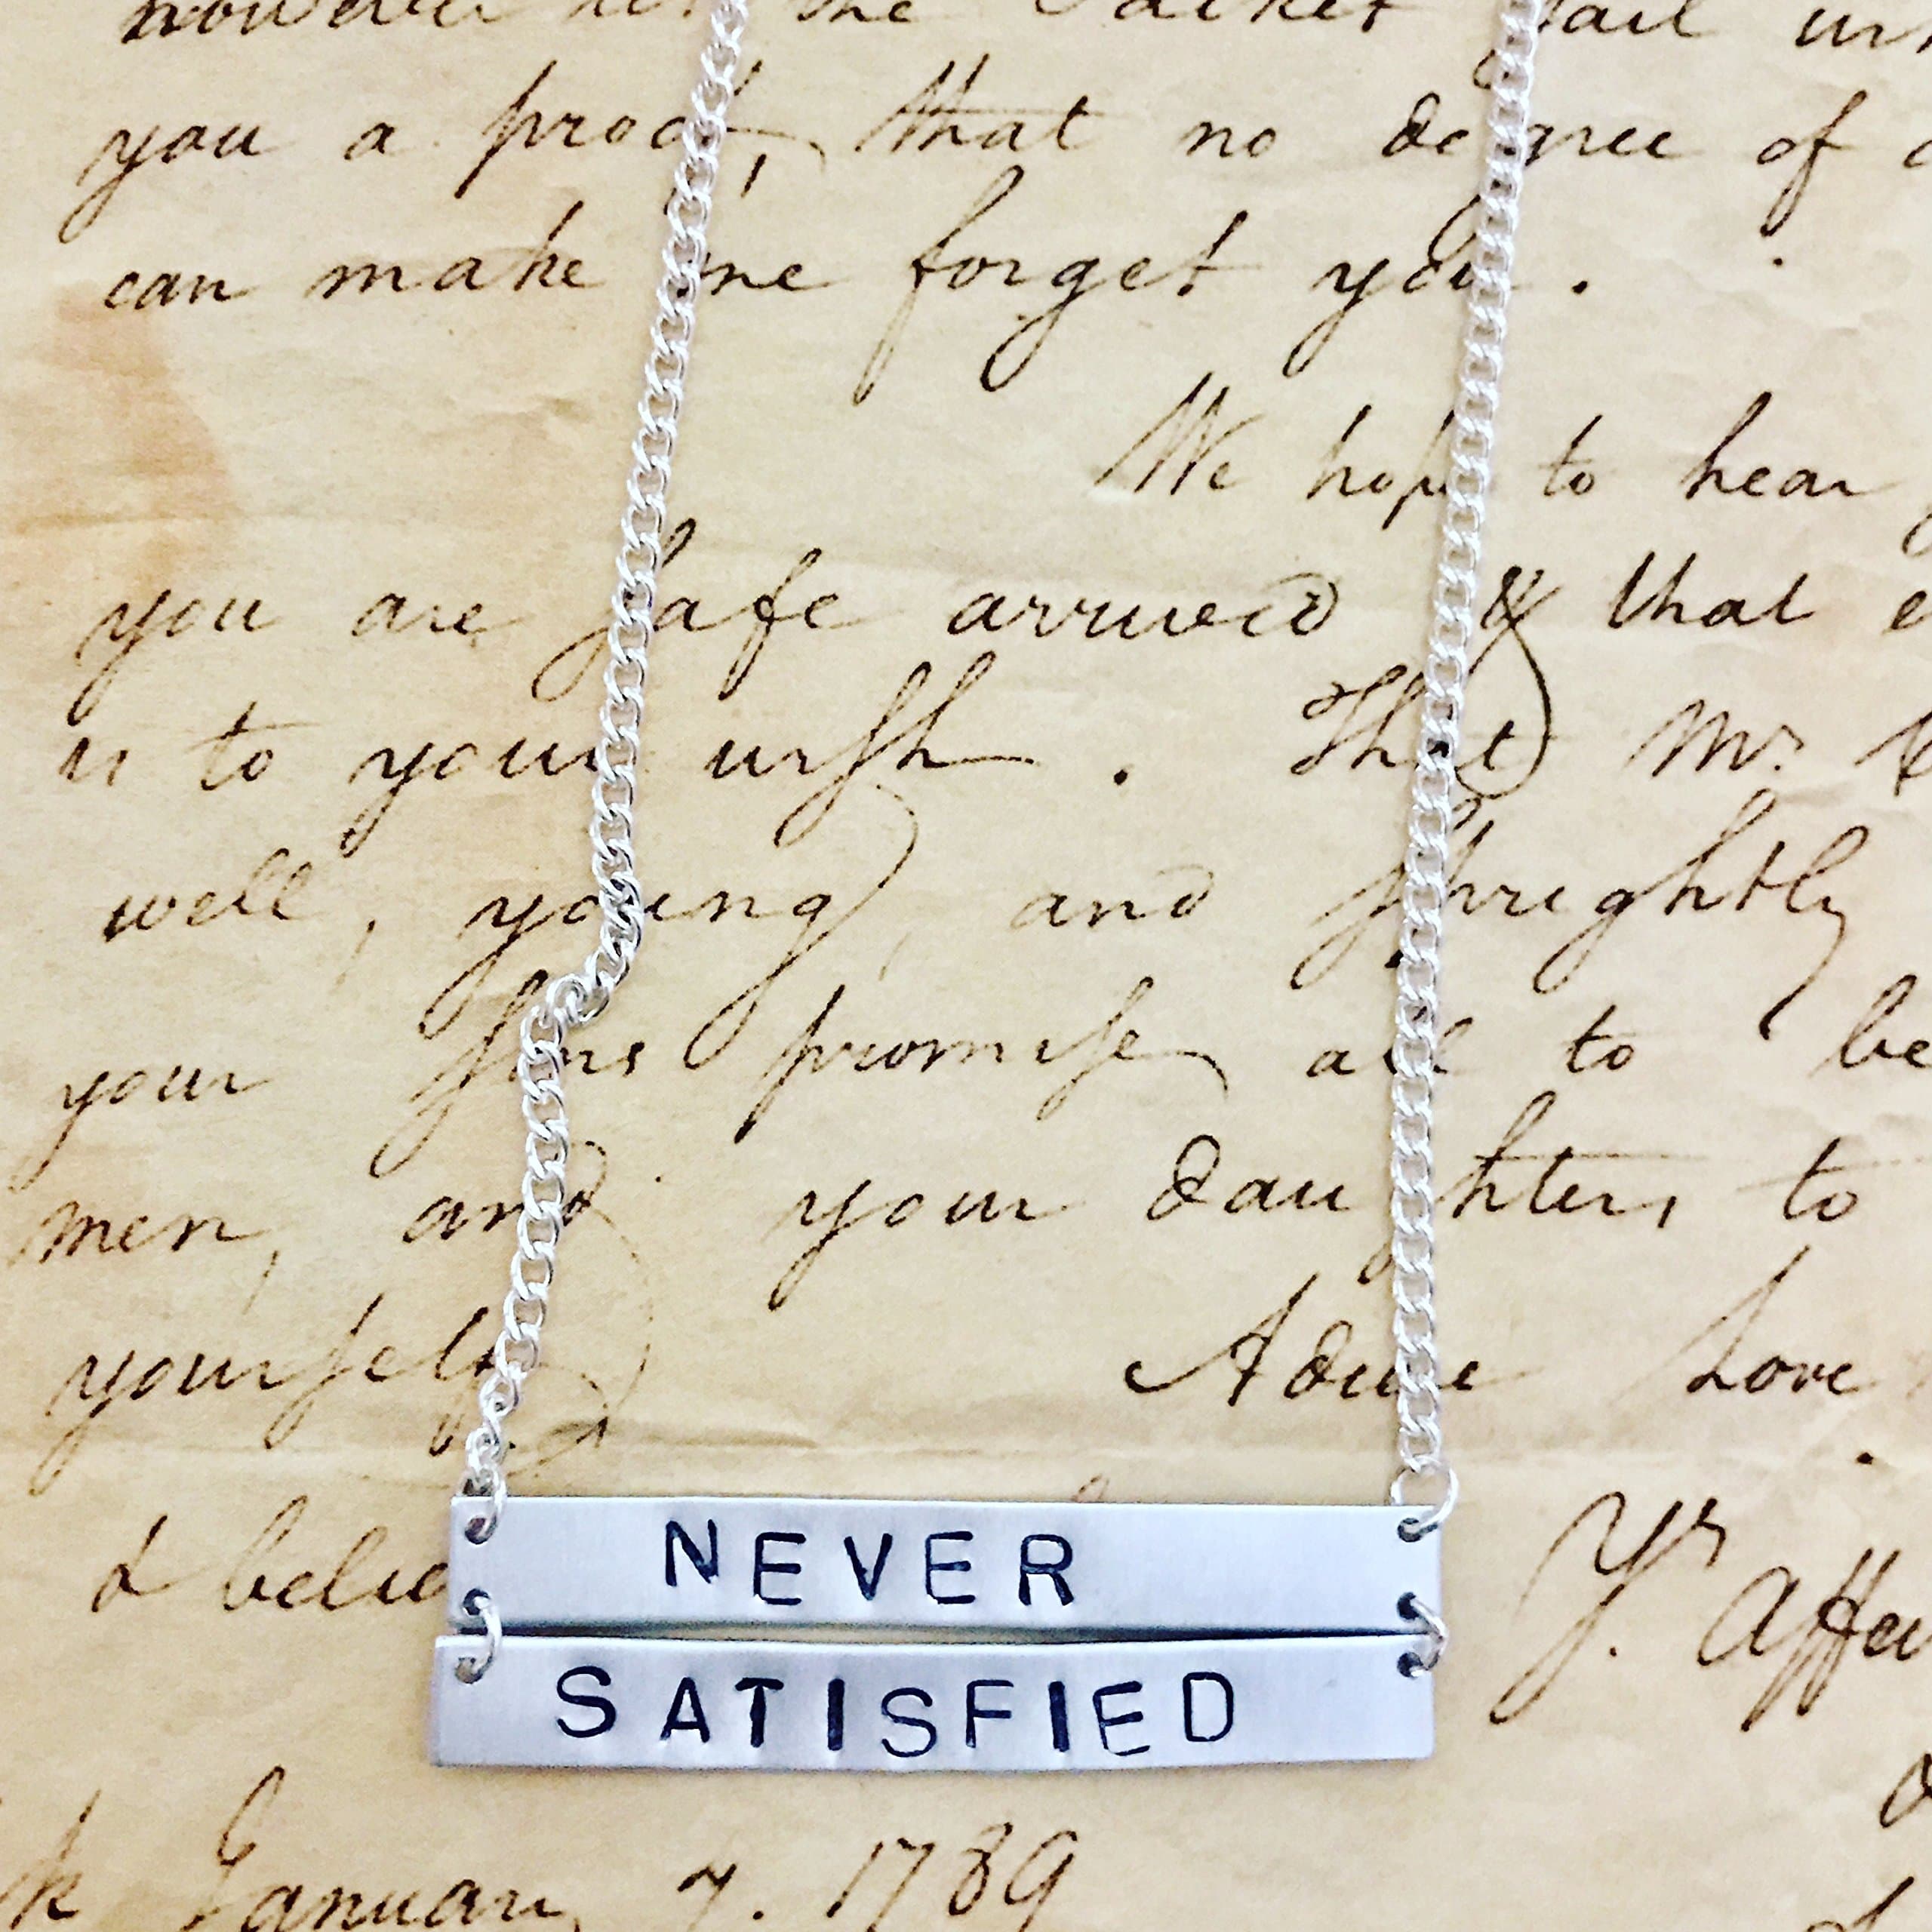 the Packet sail
you a proof, that no degree of
can make me forget you.
We hope to hear
you are safe arrived & that
is to your wish. That Mr.
well, young, and sprightly
your sons promise all to be
men, and your daughters to
yourself. Adieu Love
& believe
NEVER
SATISFIED
Yr. affec
January 7. 1789